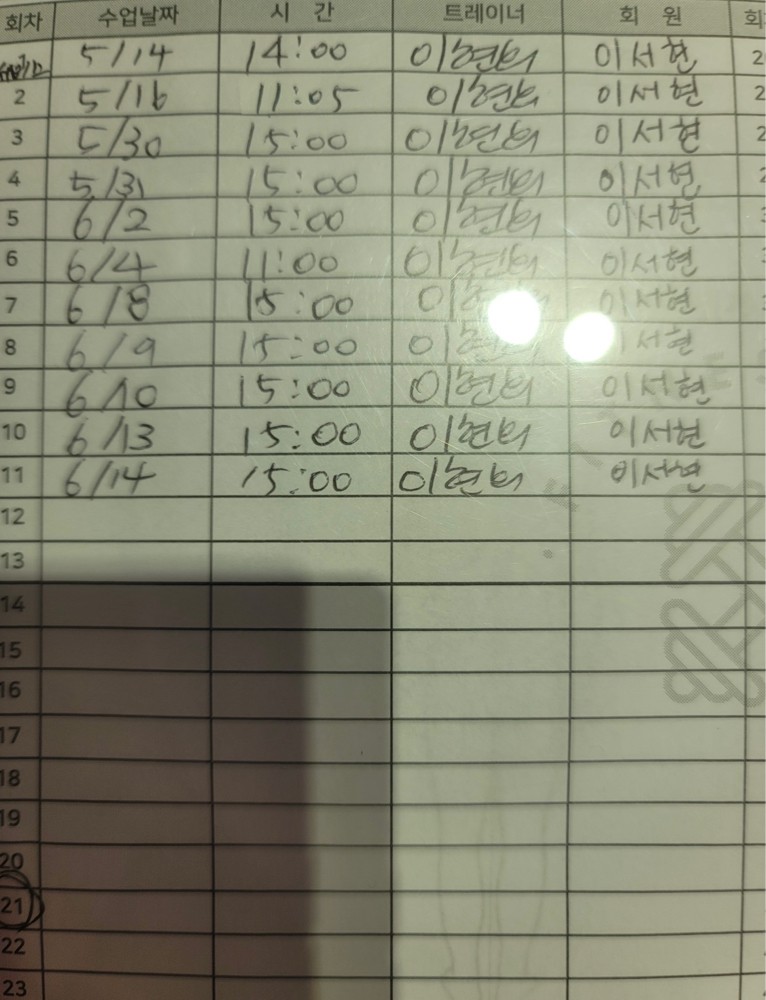 회차 수업날짜 시 간 트레이너 회 원 회
5/14 14:00 이현희 이서현 2
2 5/16 11:05 이현희 이서현 2
3 5/30 15:00 이현희 이서현 2
4 5/31 15:00 이현희 이서현 2
5 6/2 15:00 이현희 이서현 3
6 6/4 11:00 이현희 이서현 3
7 6/8 15:00 이서현 3
8 6/9 15:00 서현
9 6/10 15:00 이현희 이서현
10 6/13 15:00 이현희 이서현
11 6/14 15:00 이현희 이서현
12
13
14
15
16
17
18
19
20
21
22
23